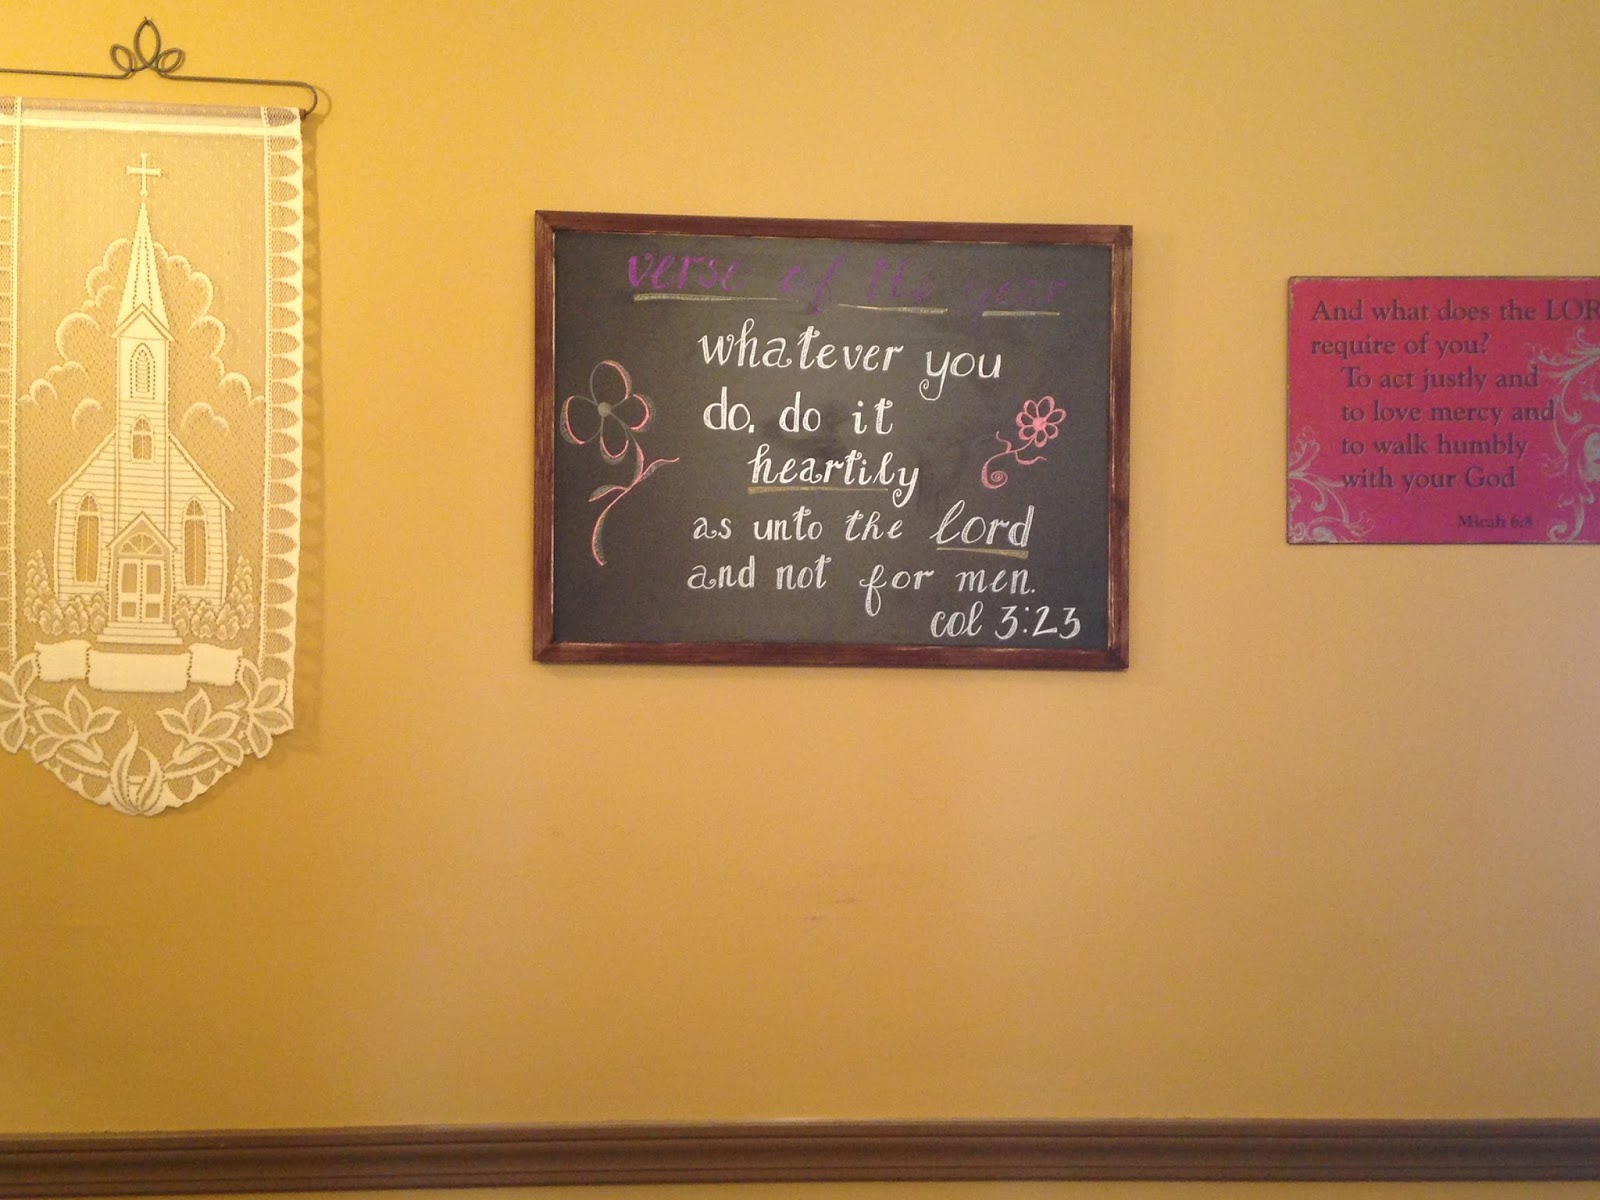 verse of the year
whatever you
do, do it
heartily
as unto the lord
and not for men.
col 3:23
And what does the LOR
require of you?
To act justly and
to love mercy and
to walk humbly
with your God
Micah 6:8